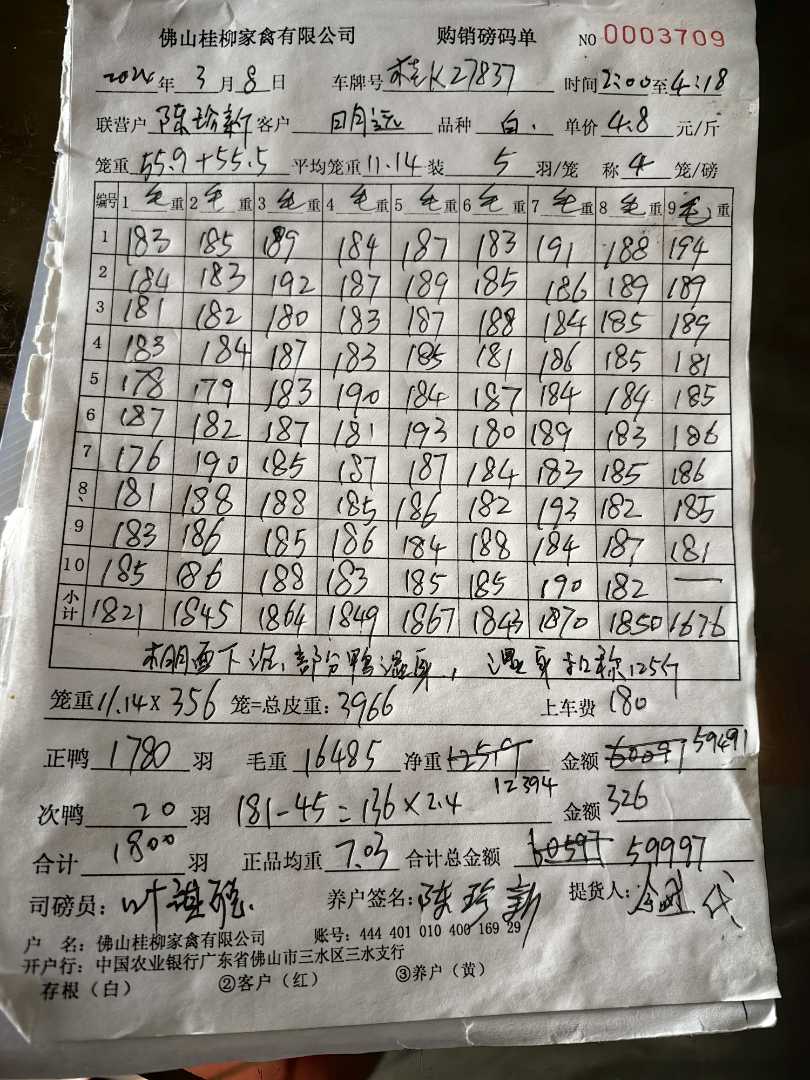 佛山桂柳家禽有限公司 购销磅码单 NO 0003709
2024年3月8日 车牌号 桂K27837 时间2:00至4:18
联营户 陈珍新 客户 明远 品种 白. 单价 4.8 元/斤
笼重 55.9+55.5 平均笼重 11.14 装 5 羽/笼 称 4 笼/磅
编号 1 毛重 2 毛重 3 毛重 4 毛重 5 毛重 6 毛重 7 毛重 8 毛重 9 毛重
1 183 185 189 184 187 183 191 188 194
2 184 183 192 187 189 185 186 189 189
3 181 182 180 183 187 188 184 185 189
4 183 184 187 183 185 181 186 185 181
5 178 179 183 190 184 187 184 184 185
6 187 182 187 181 193 180 189 183 186
7 176 190 185 187 187 184 183 185 186
8 181 188 188 185 186 182 193 182 185
9 183 186 185 186 184 188 184 187 181
10 185 186 188 183 185 185 190 182 —
小计 1821 1845 1864 1849 1867 1843 1870 1850 1676
棚面下沉,部分鸭湿身,湿身扣称125斤
笼重 11.14 X 356 笼=总皮重:3966 上车费 180
正鸭 1780 羽 毛重 16485 净重 12519 12394 金额 60091 59491
次鸭 20 羽 181-45=136×2.4 金额 326
合计 1800 羽 正品均重 7.03 合计总金额 60597 59997
司磅员:叶 养户签名:陈珍新 提货人: 代
户 名:佛山桂柳家禽有限公司 账号:444 401 010 400 169 29
开户行:中国农业银行广东省佛山市三水区三水支行
存根(白) ②客户(红) ③养户(黄)